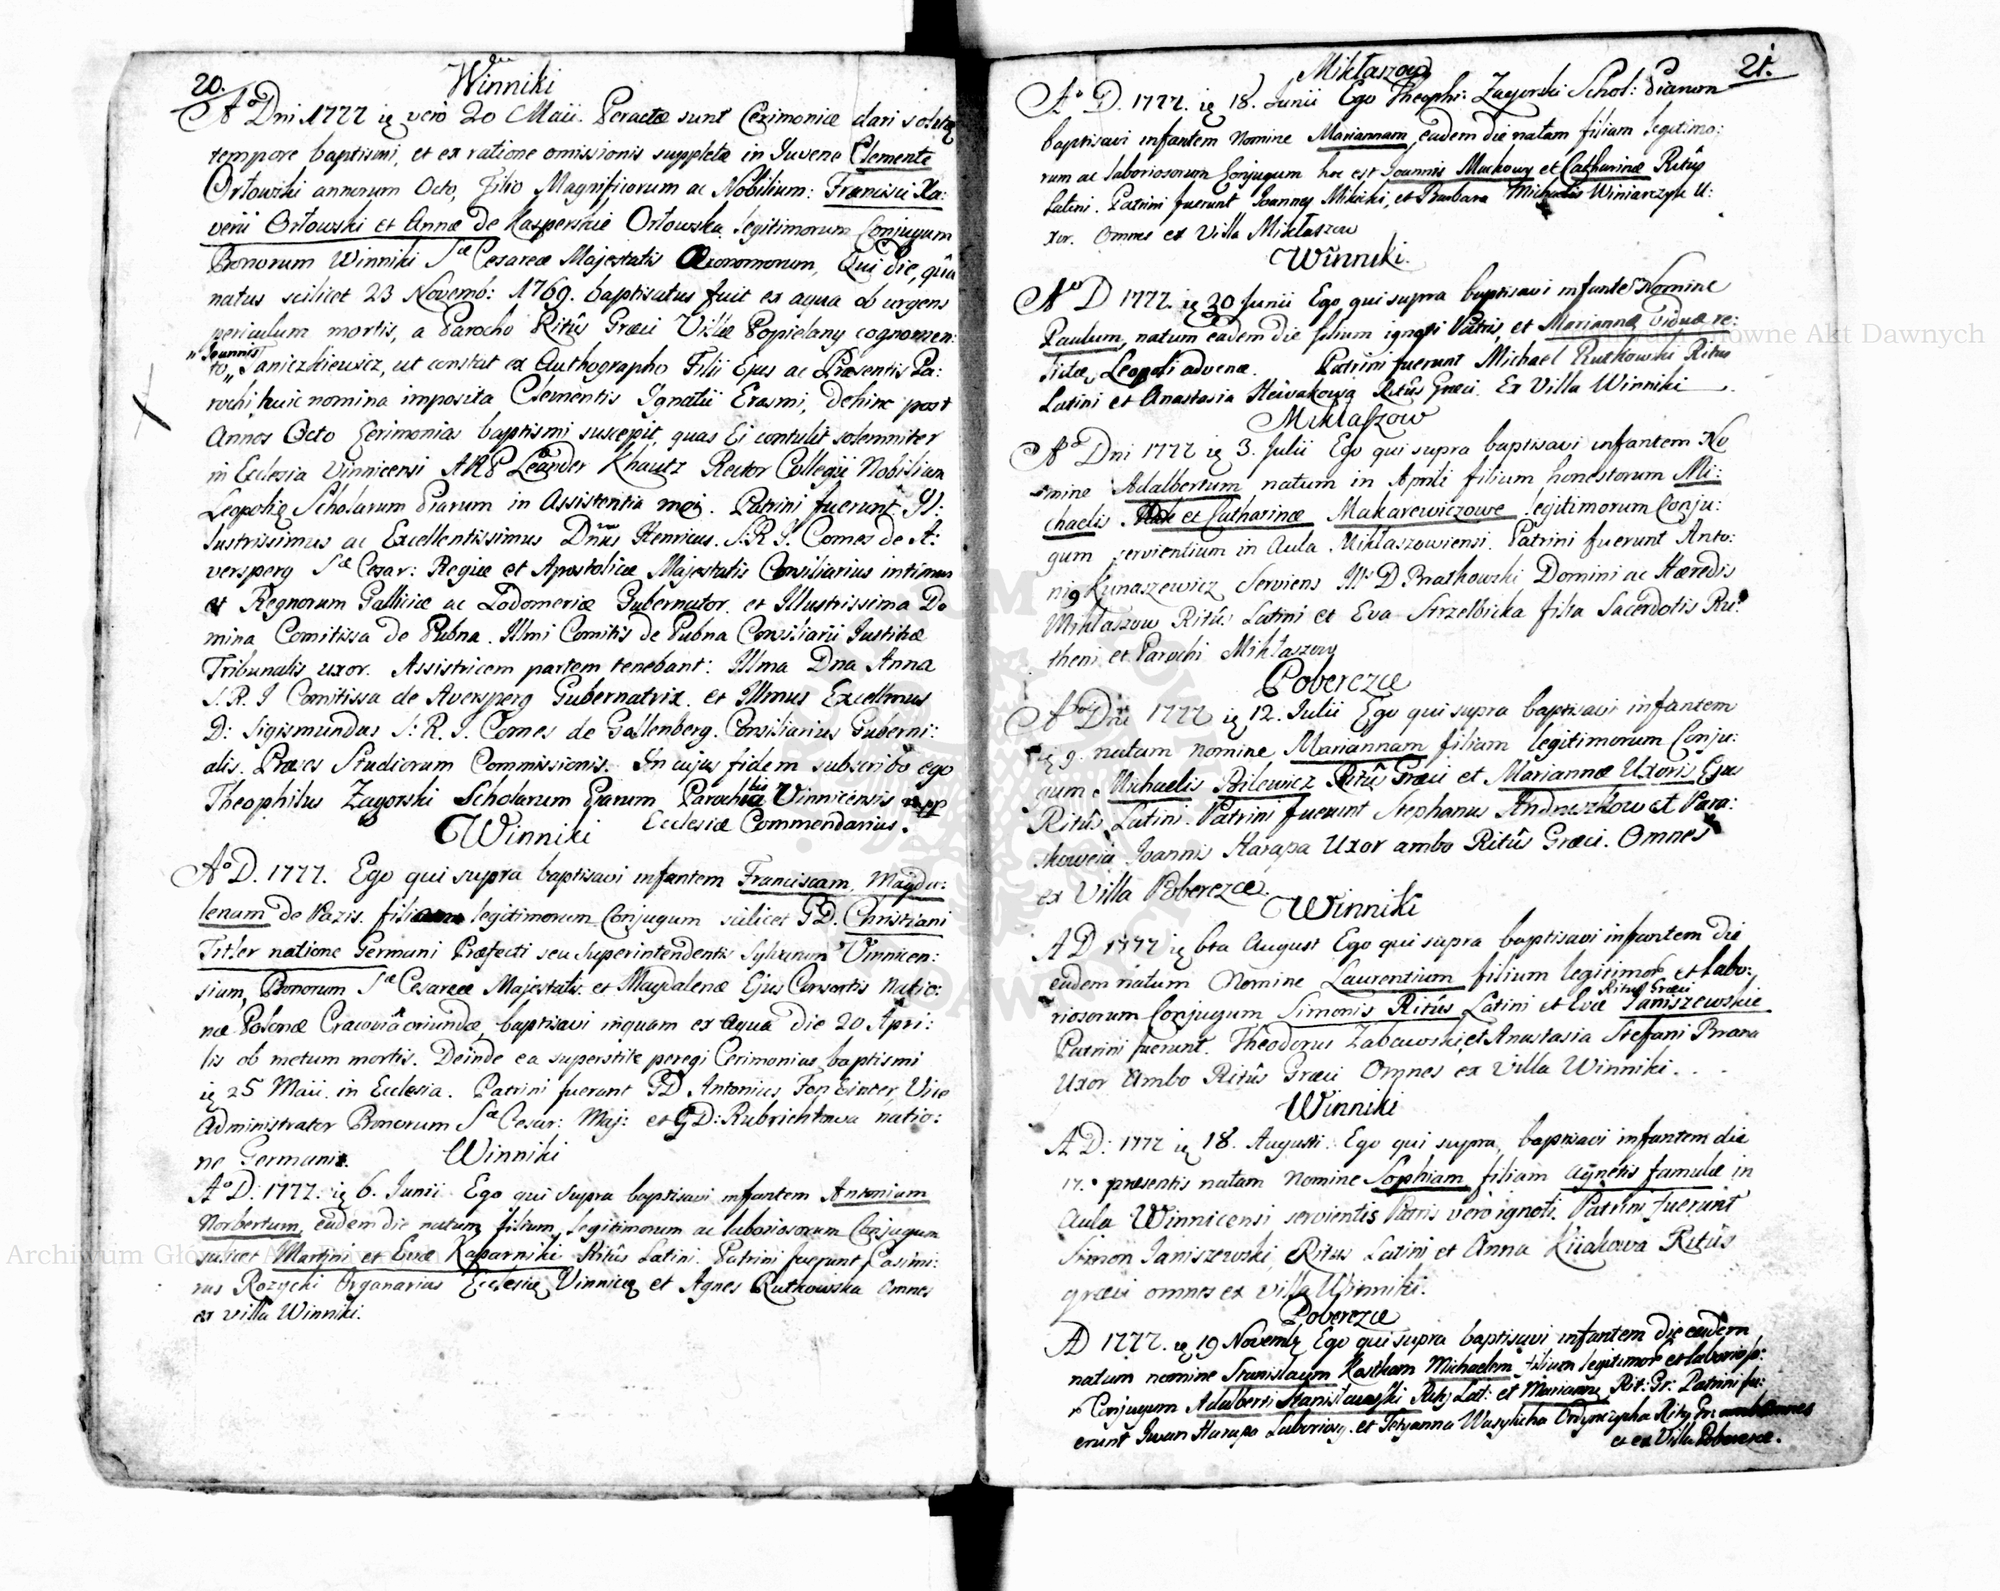 20.
Winniki
Aº Dni 1777 ię vero 20 Maii. Peractæ sunt Cerimoniæ dari solitæ
tempore baptismi, et ex ratione omissionis suppletæ in Iuvene Clemente
Orłowski annorum Octo, Filio Magnificorum ac Nobilium: Francisci Xa:
verii Orłowski et Annæ de Kasperskie Orłowska legitimorum Conjugum
Bonorum Winniki Sæ Cesareæ Majestatis Œconomorum, Qui Die, quâ
natus scilicet 23 Novemb: 1769. baptisatus fuit ex aqua ob urgens
periculum mortis, a Parocho Ritûs Græci Villæ Popielany cognomen:
"Joannis
to" Janiczkiewicz, ut constat ex Authographo Filii Ejus ac Præsentis Pa:
rochi huic nomina imposita Clementis Ignatii Erasmi, dehinc post
Annos Octo Cerimonias baptismi suscepit, quas Ei contulit solemniter
in Ecclesia Vinnicensi ARP Leander Khautz Rector Collegii Nobilium
Leopolię Scholarum Piarum in Assistentia mei. Patrini fuerunt Il:
lustrissimus ac Excellentissimus Dnûs Henricus. S.R.I. Comes de A:
versperg Sæ Cesar: Regiæ et Apostolicæ Majestatis Consiliarius intimus
et Regnorum Galliciæ ac Lodomeriæ Gubernator. et Illustrissima Do
mina Comitissa de Pubna. Illmi Comitis de Pubna Consiliarii Iustitiæ
Tribunalis uxor. Assistricem partem tenebant: Illma Dna Anna
S.R.I Comitissa de Aversperg Gubernatrix. et Illmus Excellmus
D: Sigismundus S:R.I. Comes de Gallenberg. Consiliarius Guberni:
alis. Præses Studiorum Commissionis. In cujus fidem subscribo ego
Theophilus Zagorski Scholarum Piarum Parochialis Vinnicensis mpp
Ecclesiæ Commendarius.
Winniki
Aº D. 1777. Ego qui supra baptisavi infantem Franciscam, Magda:
lenam de Pazis. filiam legitimorum Conjugum scilicet GD. Christiani
Titler natione Germani Præfecti seu Superintendentis Sylvarum Vinnicen:
sium, Bonorum Sæ Cesareæ Majestatis. et Magdalenæ Ejus Consortis natio:
næ Polonæ Cracoviâ oriundæ, baptisavi inquam ex aqua die 20 Apri:
lis ob metum mortis. Deinde ea superstite peregi Cerimonias baptismi
ię 25 Maii. in Ecclesia. Patrini fuerunt GD Antonius Fon Einter, Vice
Administrator Bonorum Sæ Cesar: Maj: et GD: Rubrichtowa natio:
ne Germania.
Winniki
Aº D: 1777. ię 6. Junii Ego qui supra baptisavi infantem Antonium
Norbertum, eadem die natum, filium, legitimorum ac laboriosorum Conjugum
scilicet Martini et Evæ Kaparniki Ritûs Latini. Patrini fuerunt Casimi:
rus Rozycki Organarius Ecclesię Vinnicę et Agnes Rutkowska omnes
ex villa Winniki.
21.
Mikłaszow
Aº D. 1777. ię 18. Junii Ego Theophi: Zagorski Schol: Piarum
baptisavi infantem nomine Mariannam, eadem die natam filiam legitimo:
rum ac laboriosorum Conjugum hoc est Joannis Markowy et Catharinæ Ritûs
Latini. Patrini fuerunt Joannes Milicki, et Barbara Michaelis Winiarczyk U:
xor. Omnes ex Villa Mikłaszow
Winniki.
Aº D 1777. ię 20 Junii Ego qui supra baptisavi infante Nomine
Paulum, natum eadem die filium ignoti Patris, et Mariannæ viduæ re:
lictæ, Leopoli advenæ. Patrini fuerunt Michael Rutkowski Ritus
Latini et Anastasia Ritûs Græci. Ex Villa Winniki
Mikłaszow
Aº Dni 1777 ię 3. Julii Ego qui supra baptisavi infantem No
mine Adalbertum natum in Aprili filium honestorum Mi:
chaelis et Catharinæ Makarewiczowe legitimorum Conju:
gum servientium in Aula Mikłaszowiensi. Patrini fuerunt Anto:
nię Kunaszewicz Serviens Ill: D Bratkowski Domini ac Hæredis
Mikłaszow Ritûs Latini et Eva Strzelbicka filia Sacerdotis Ru:
theni et Parochi Mikłaszow
Poberezce
Aº Dni 1777 ię 12. Iulii Ego qui supra baptisavi infantem
ię 9. natam nomine Mariannam filiam legitimorum Conju:
gum Michaelis Bilewicz Ritûs Græci et Mariannæ Uxoris Ejus
Ritûs Latini. Patrini fuerunt Stephanus Andruszkow et Para:
skoweia Joannis Harapa Uxor ambo Ritûs Græci. Omnes
ex Villa Poberezce.
Winniki
A D 1777 ię 6ta August Ego qui supra baptisavi infantem die
eadem natum Nomine Laurentium filium legitimor: et labo:
Ritus Græci
riosorum Conjugum Simonis Ritûs Latini et Evæ Janiszewskie
Patrini fuerunt. Theodorus Zabawski, et Anastasia Stefani Brana
Uxor Ambo Ritûs Græci Omnes ex Villa Winniki.
Winniki
A D: 1777 ię 18. Augusti. Ego qui supra, baptisavi infantem die
17. præsentis natam Nomine Sophiam filiam Agnetis famulæ in
Aula Winnicensi servientis Patris vero ignoti. Patrini fuerunt
Simon Janiszewski, Ritus Latini et Anna Kiiakowa Ritûs
græci omnes ex villa Winniki.
Poberezce
AD 1777. ię 19 Novemb Ego qui supra baptisavi infantem die eadem
natum nomine Stanislaum Kostkam Michaelem filium legitimor et laborioso:
Conjugum Adalberti Stanislawski Ritus Lat: et Mariannæ Rit: Gr: Patrini fu:
erunt Iwan Harapa Laborios. et Tetyanna Wasylicha Ritus Gr: Omnes
et ex Villa Poberezce.
Archiwum Główne Akt Dawnych
Archiwum Główne Akt Dawnych